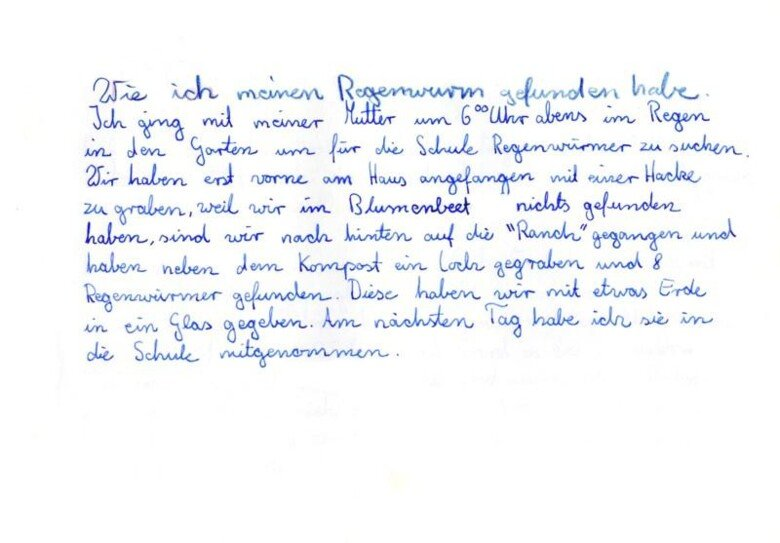 Wie ich meinen Regenwurm gefunden habe.
Ich ging mit meiner Mutter um 6⁰⁰ Uhr abens im Regen
in den Garten um für die Schule Regenwürmer zu suchen.
Wir haben erst vorne am Haus angefangen mit einer Hacke
zu graben, weil wir im Blumenbeet nichts gefunden
haben, sind wir nach hinten auf die "Ranch" gegangen und
haben neben dem Kompost ein Loch gegraben und 8
Regenwürmer gefunden. Diese haben wir mit etwas Erde
in ein Glas gegeben. Am nächsten Tag habe ich sie in
die Schule mitgenommen.